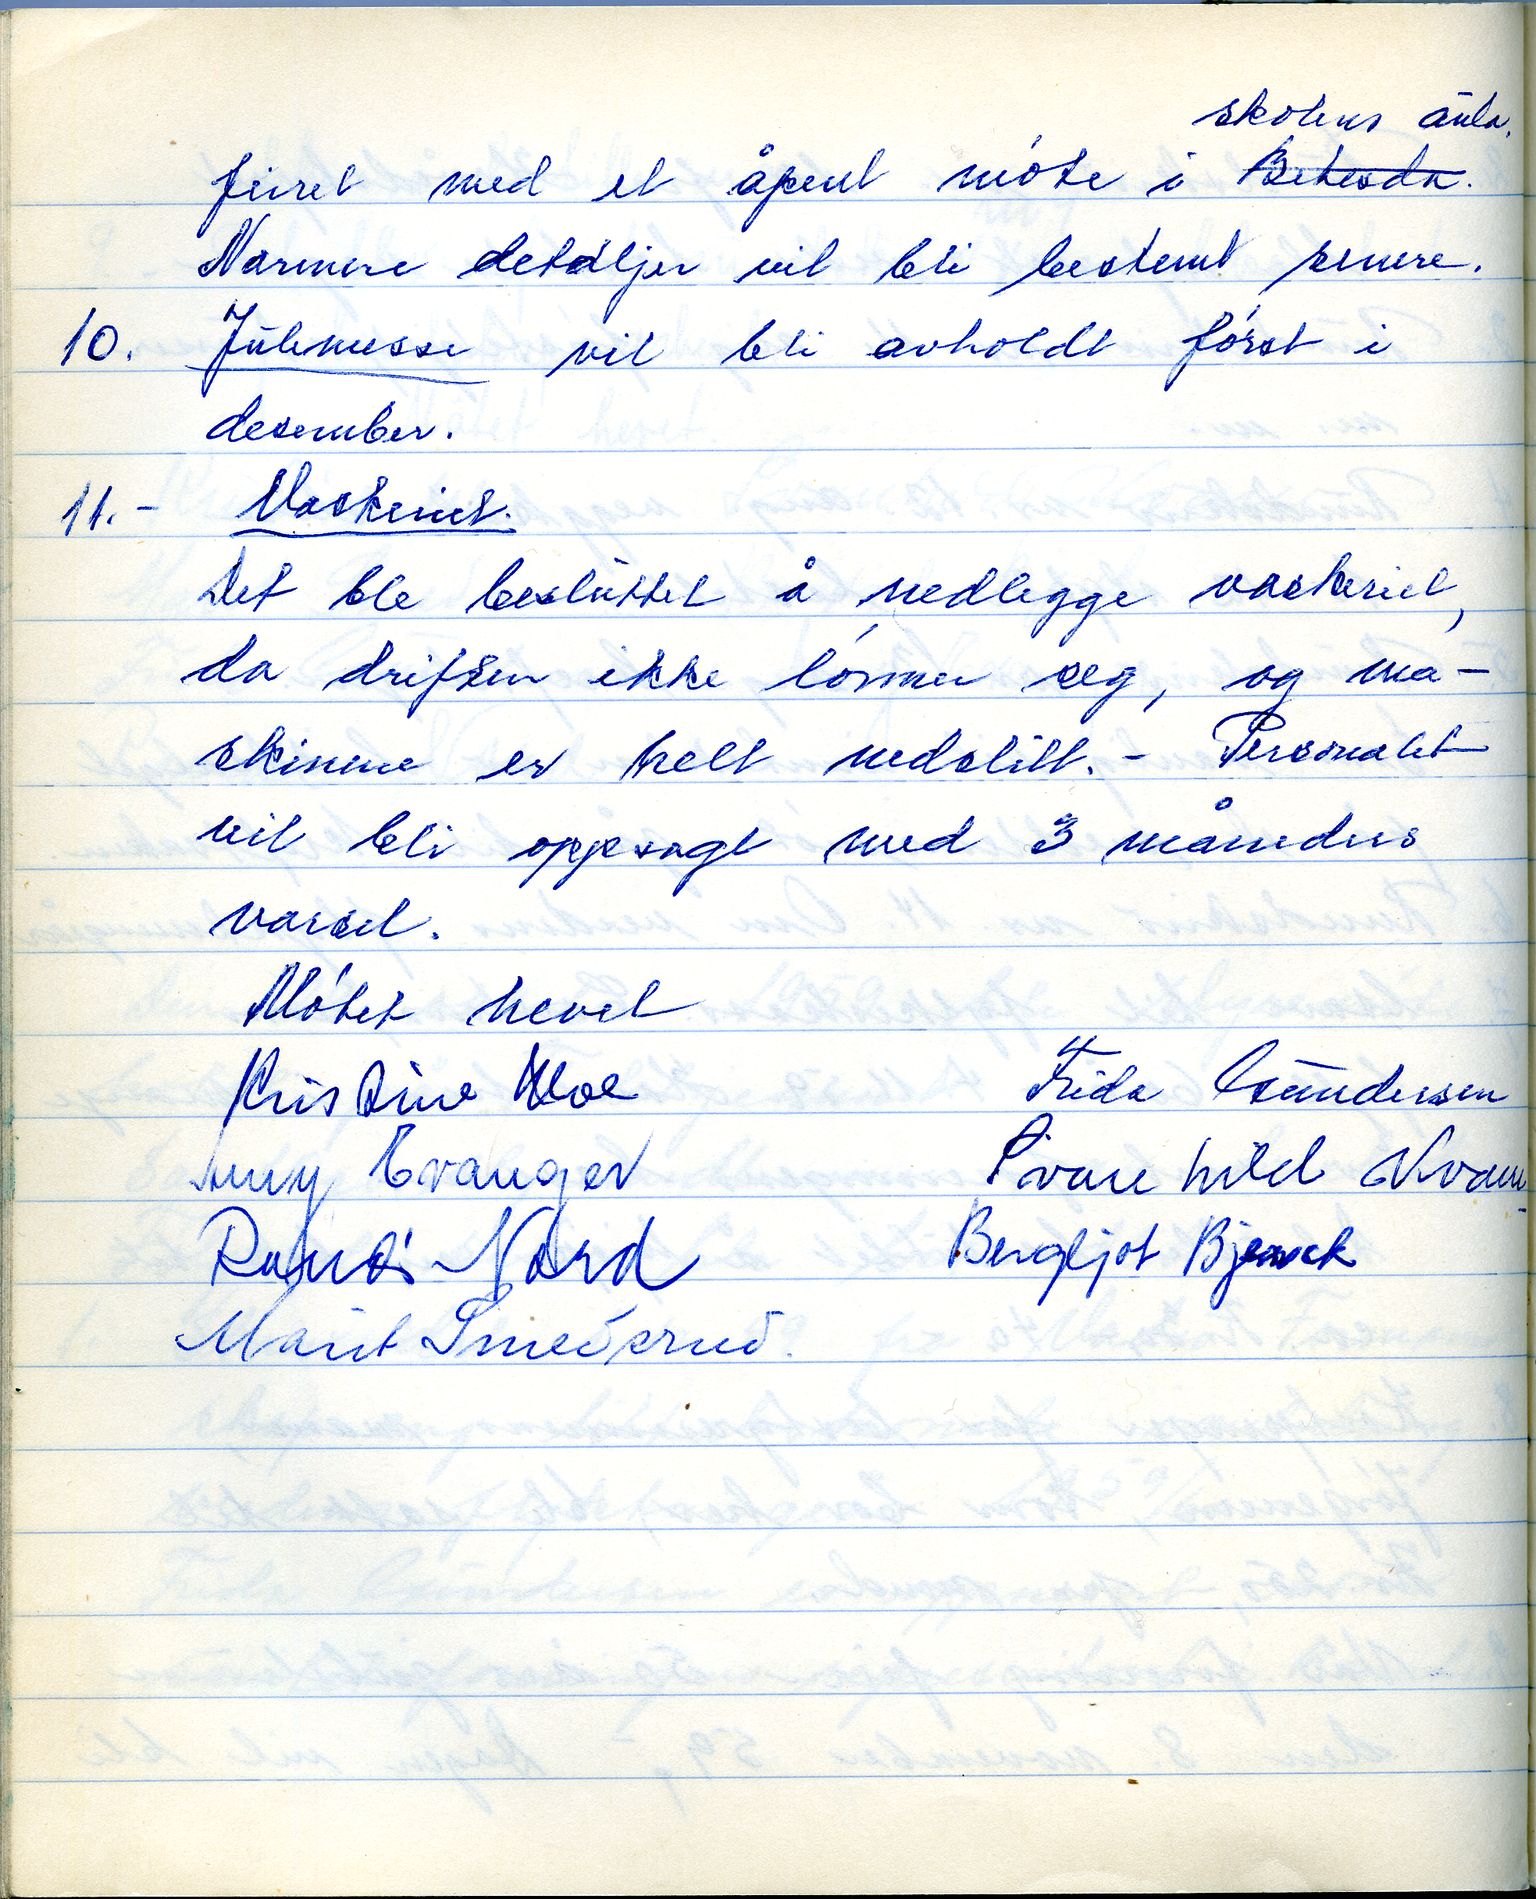 skolens aula.
feiret med et åpent møte i Betesda.
Nærmere detaljer vil bli bestemt senere.
10. Julemesse vil bli avholdt først i
desember.
11. - Vaskeriet.
Det ble besluttet å nedlegge vaskeriet,
da driften ikke lønner seg, og ma-
skinene er helt nedslitt. - Personalet
vil bli oppsagt med 3 måneders
varsel.
Møtet hevet
Kristine Moe Frida Gundersen
Evanger
Nord Bergljot
Marit Smedsrud.